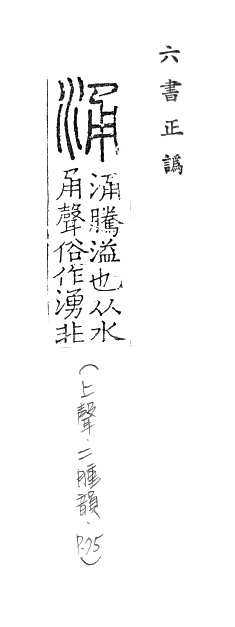 六書正譌
涌 涌騰溢也从水
甬聲俗作湧非
(上聲.二腫韻.P.75)